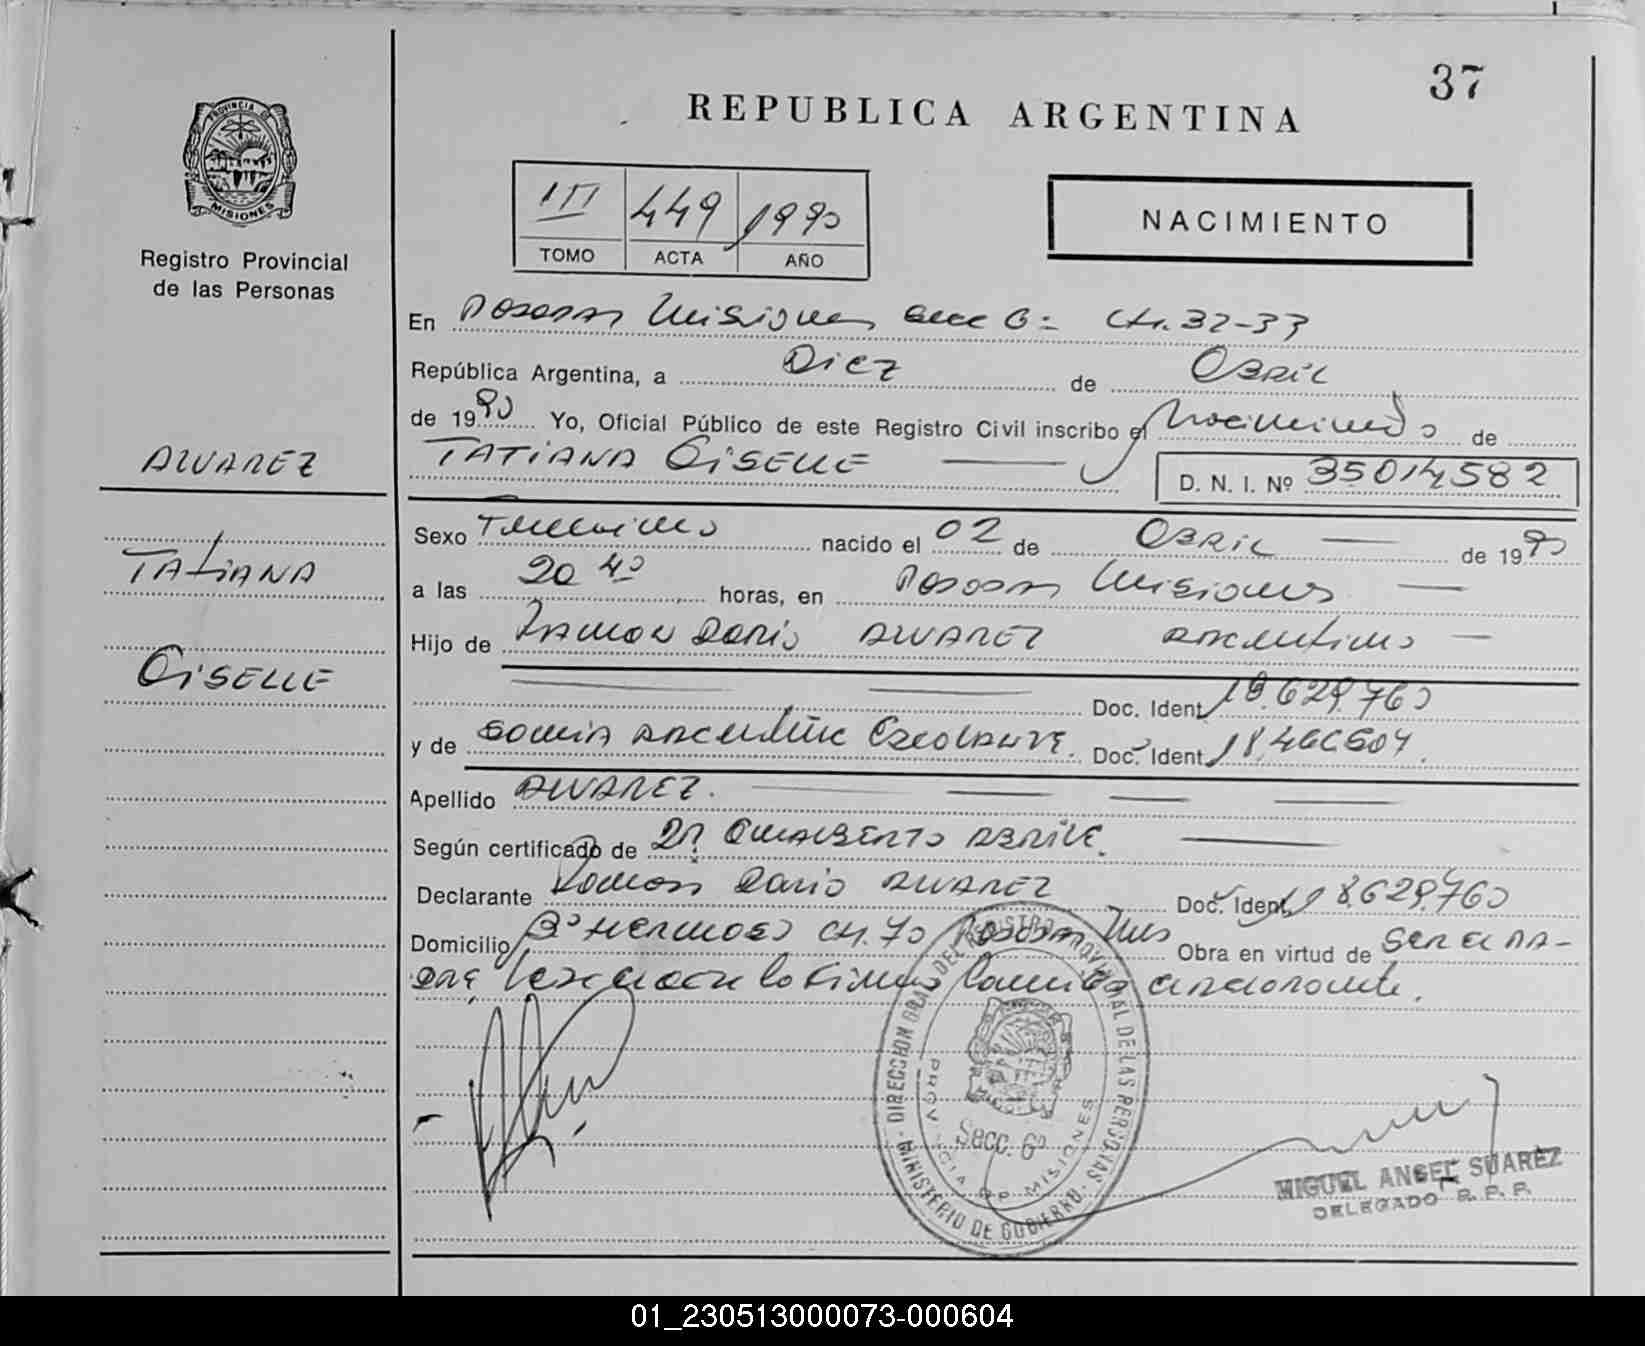 37
REPUBLICA ARGENTINA
PROVINCIA DE
MISIONES
Registro Provincial
de las Personas
III 449 1990
TOMO ACTA AÑO
NACIMIENTO
En Posadas Misiones Secc 6= Ch. 32-33
República Argentina, a Diez de Abril
de 1990 Yo, Oficial Público de este Registro Civil inscribo el Nacimiento de
TATIANA GISELLE D. N. I. Nº 35014582
ALVAREZ
TATIANA
GISELLE
Sexo Femenino nacido el 02 de ABRIL de 1990
a las 20 40 horas, en Posadas Misiones
Hijo de RAMON Dario ALVAREZ Argentino
Doc. Ident. 18.629.760
y de SONIA Argentina Doc. Ident.
Apellido ALVAREZ.
Según certificado de DR.
Declarante Ramon Dario ALVAREZ Doc. Ident. 18.629.760
Domicilio Bº HERMOSO CH. 70 Posadas Mnes Obra en virtud de
DIRECCION GRAL DEL REGISTRO PROVINCIAL DE LAS PERSONAS
MINISTERIO DE GOBIERNO
PROVINCIA DE MISIONES
Secc. 6ª
MIGUEL ANGEL SUAREZ
DELEGADO R. P. P.
01_230513000073-000604